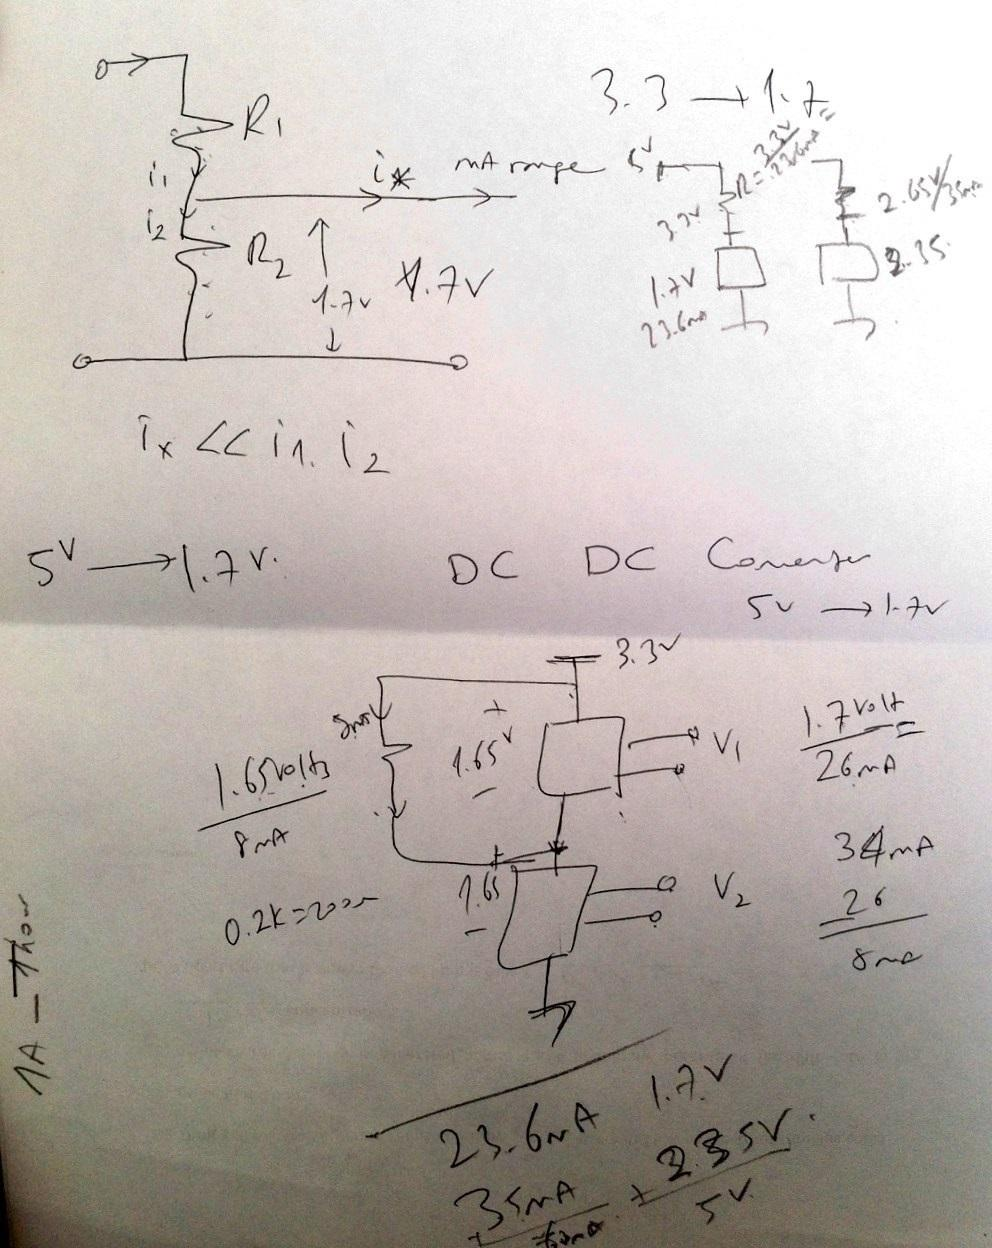 R1
i1
i2
R2
i*
mA range
1.7v
1.7V
3.3 → 1.7
5V
R = 3.3V/23.6mA
3.3V
1.7V
23.6mA
2.65V/35mA
2.35
ix << i1. i2
5V → 1.7V.
DC DC Converter
5v → 1.7V
3.3V
8mA
+
1.65V
-
V1
1.65Volts
8mA
0.2K=200Ω
+
1.65
-
V2
1.7Volt
26mA
34mA
26
8mA
1A - 1hour
23.6mA 1.7V
35mA + 2.35V.
5V